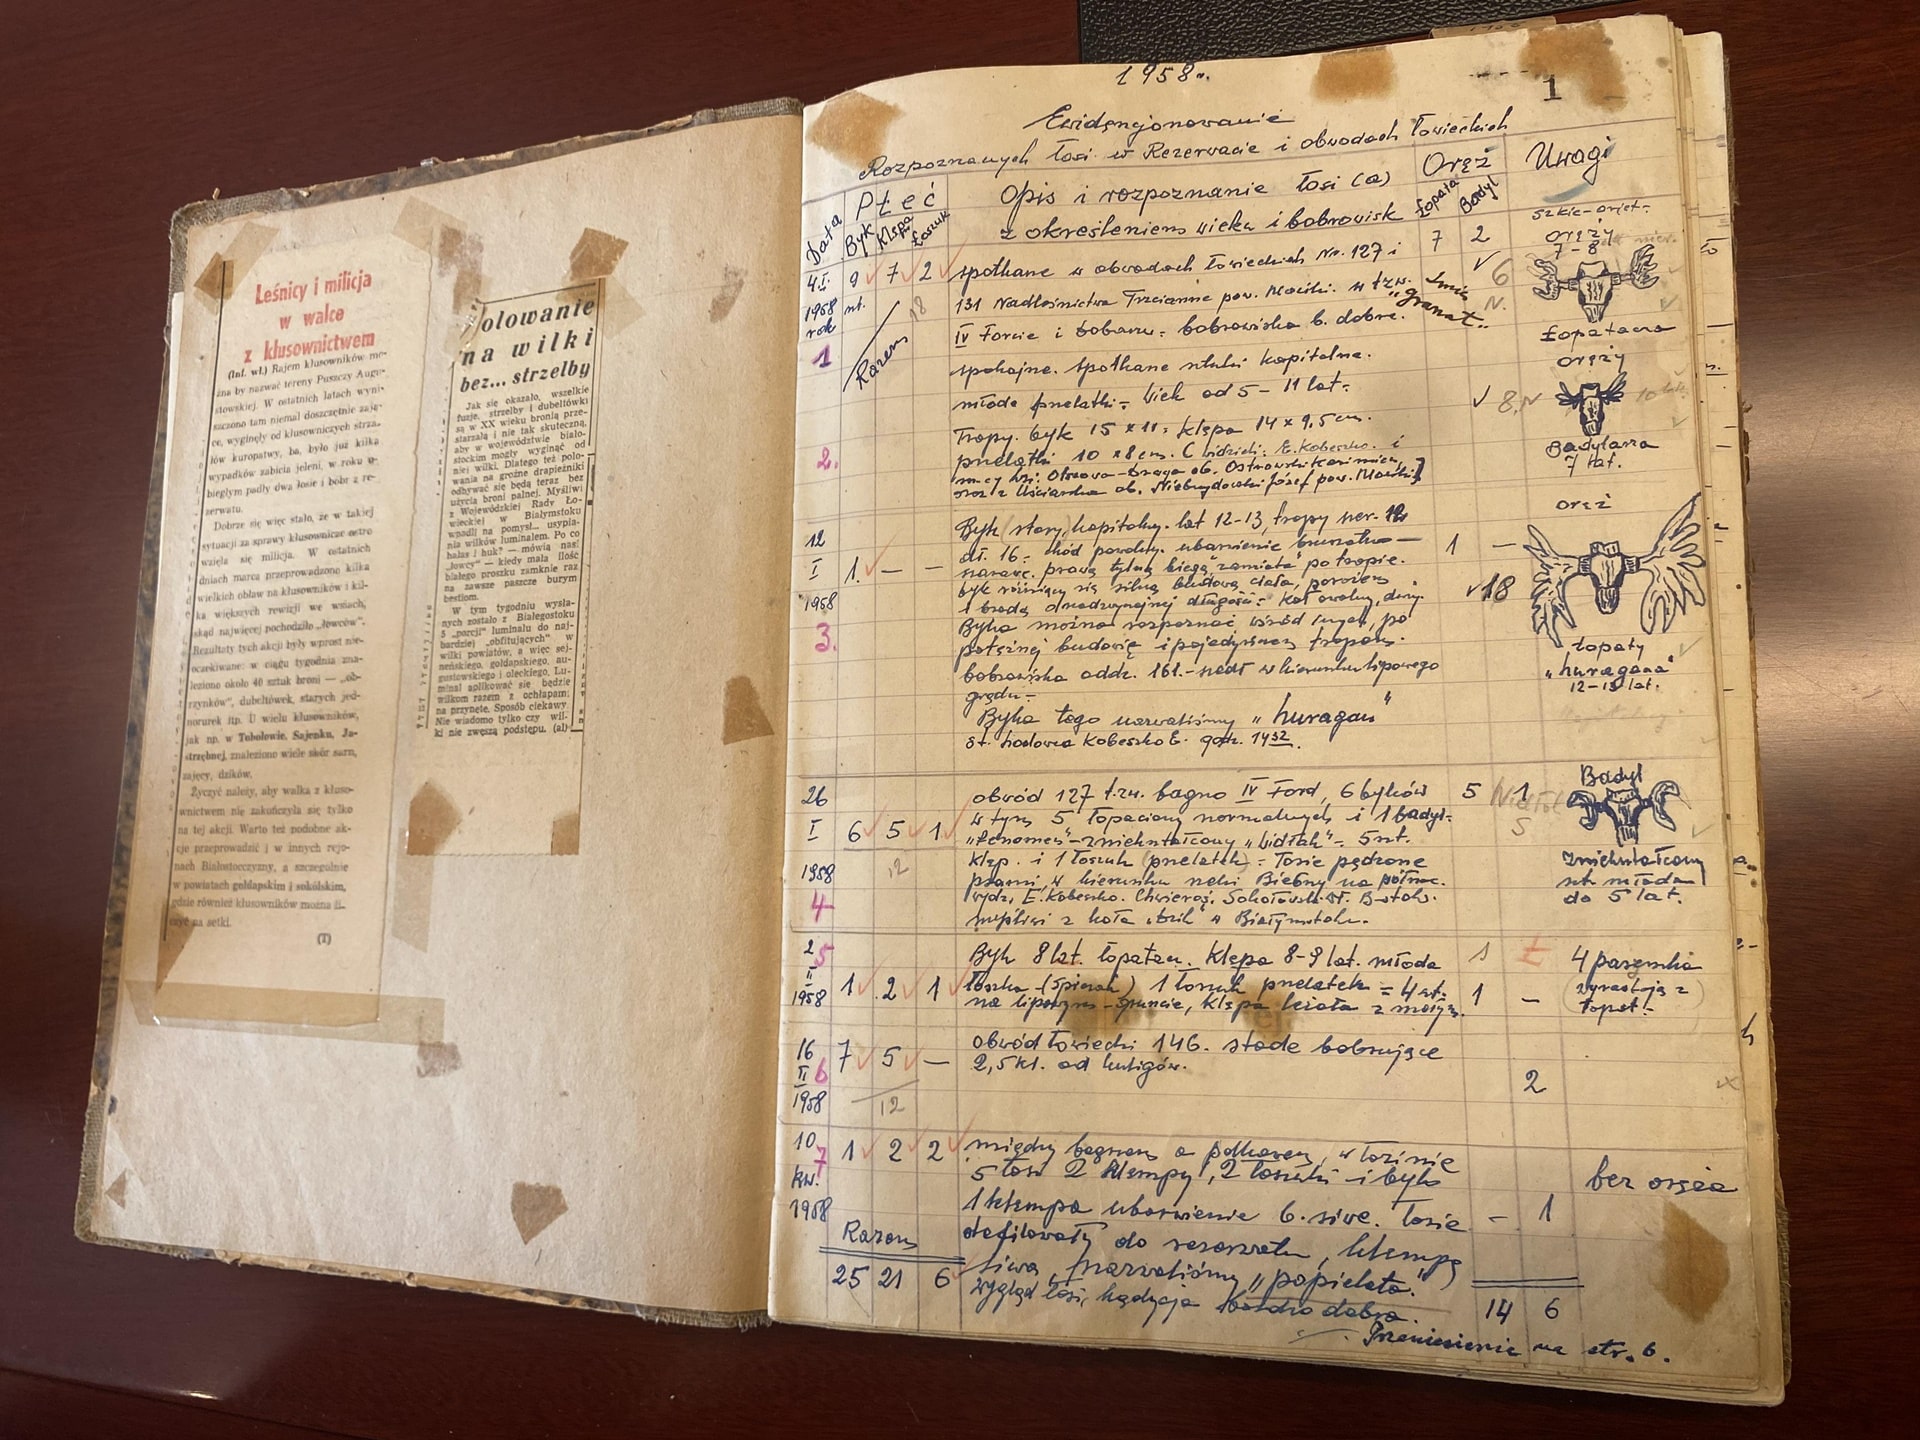 Leśnicy i milicja
w walce
z kłusownictwem
(Inf. wł.) Rajem kłusowników mo-
żna by nazwać tereny Puszczy Augu-
stowskiej. W ostatnich latach wyni-
szczono tam niemal doszczętnie zają-
ce, wyginęły od kłusowniczych strza-
łów kuropatwy, ba, było już kilka
wypadków zabicia jeleni, w roku u-
biegłym padły dwa łosie i bóbr z re-
zerwatu.
Dobrze się więc stało, że w takiej
sytuacji za sprawy kłusownicze ostro
wzięła się milicja. W ostatnich
dniach marca przeprowadzono kilka
wielkich obław na kłusowników i kil-
ka większych rewizji we wsiach,
skąd najwięcej pochodziło „łowców".
Rezultaty tych akcji były wprost nie-
oczekiwane: w ciągu tygodnia zna-
leziono około 40 sztuk broni — „ob-
rzynków", dubeltówek, starych jed-
norurek itp. U wielu kłusowników,
jak np. w Tobołowie, Sajenku, Ja-
strzębnej, znaleziono wiele skór sarn,
zajęcy, dzików.
Życzyć należy, aby walka z kłuso-
wnictwem nie zakończyła się tylko
na tej akcji. Warto też podobne ak-
cje przeprowadzić i w innych rejo-
nach Białostocczyzny, a szczególnie
w powiatach gołdapskim i sokólskim,
gdzie również kłusowników można li-
czyć na setki.
(I)
olowanie
na wilki
bez... strzelby
Jak się okazało, wszelkie
fuzje, strzelby i dubeltówki
są w XX wieku bronią prze-
starzałą i nie tak skuteczną,
aby w województwie biało-
stockim mogły wyginąć od
niej wilki. Dlatego też polo-
wania na groźne drapieżniki
odbywać się będą teraz bez
użycia broni palnej. Myśliwi
z Wojewódzkiej Rady Ło-
wieckiej w Białymstoku
wpadli na pomysł... usypia-
nia wilków luminalem. Po co
hałas i huk? — mówią nasi
„łowcy" — kiedy mała ilość
białego proszku zamknie raz
na zawsze paszcze burym
bestiom.
W tym tygodniu wysła-
nych zostało z Białegostoku
5 „porcji" luminalu do naj-
bardziej „obfitujących" w
wilki powiatów, a więc sej-
neńskiego, gołdapskiego, au-
gustowskiego i oleckiego. Lu-
minal aplikować się będzie
wilkom razem z ochłapami
na przynętę. Sposób ciekawy.
Nie wiadomo tylko czy wil-
ki nie zwęszą podstępu. (al)
1958r.
1
Ewidencjonowanie
Rozpoznanych łosi w Rezerwacie i obwodach łowieckich
Data Płeć Opis i rozpoznanie łosi (a) Oręż Uwagi
Byk Klępa Łoszak z określeniem wieku i bobrowisk Łopata Badyl
4.I. 9 7 2 spotkane w obwodach łowieckich Nr. 127 i 7 2
1958 rok szt. 131 Nadleśnictwa Trzcianne pow. Mońki. w tzw. „granat"
Razem 18 IV Forcie i bobrow. bobrowiska b. dobre.
1 spokojne. spotkane sztuki kapitalne.
młode pnelatki = wiek od 5 – 11 lat =
Tropy. byk 15 x 11 = klępa 14 x 9,5 cm.
2. pnelątki 10 x 8 cm. Widzieli: E. Kobeszko. i
oraz z Uściańska ob. Niebrzydowski Józef pow. Mońki
6 N.
oręży
7–8
Łopatacza
oręży
8. N
Badylarza
7 lat.
12 I 1958 1. — — Byk (stary) kapitalny. lat 12–13, tropy szer. 12 1 —
dł. 16 = chód powolny. ubarwienie brunatno—
szarawe. prawą tylną biegą „zamiata" po tropie.
byk różniący się silną budową ciała, porożem
3. Byka można rozpoznać wśród innych, po
potężnej budowie i pojedyńczym tropem.
bobrowiska oddz. 161.– nadl. w kierunku lipowego
grądu –
Byka tego nazwaliśmy „huragan"
st. hodowca Kobeszko E. godz. 14 32.
18
oręż
łopaty
„huragana"
12–13 lat.
26 I 1958 6 5 1 obwód 127 t.zw. bagno IV Ford, 6 byków 5 1
w tym 5 łopaciony normalnych i 1 badyl.
„fenomen" – zniekształcony „widłak" = 5 szt.
12 klęp. i 1 łoszak (pnelatek) = łosie pędzone
psami, w kierunku rzeki Biebrzy na północ.
4 widz. E. Kobeszko. Sokołowski
myśliwi z koła „dzik" w Białymstoku.
5
Badyl
zniekształcony
szt. młoda
do 5 lat.
2 II 1958 5 1 2 1 Byk 8 lat. łopatacz. Klępa 8–9 lat. młoda 1
łoszka – (śpicak) 1 łoszak pnelatek = 4 szt. 1 —
na lipowym – gruncie, klępa leżała z małym.
4 pasemka
wyrastają z
łopat. –
16 II 1958 6 7 5 — obwód łowiecki 146. stado bobrujące
2,5 kl. od kuligów. 2
12
10 kw. 1958 7 1 2 2 między bagnem a polkowem, w łozinie
5 łosi 2 klempy, 2 łoszaki – i byk bez oręża
1 klempa ubarwienie b. siwe. łosie — 1
Razem defilowały do rezerwatu, klempę
25 21 6 siwą nazwaliśmy „popielata."
wygląd łosi, kądycja bardzo dobra. 14 6
Przeniesienie na str. 6.